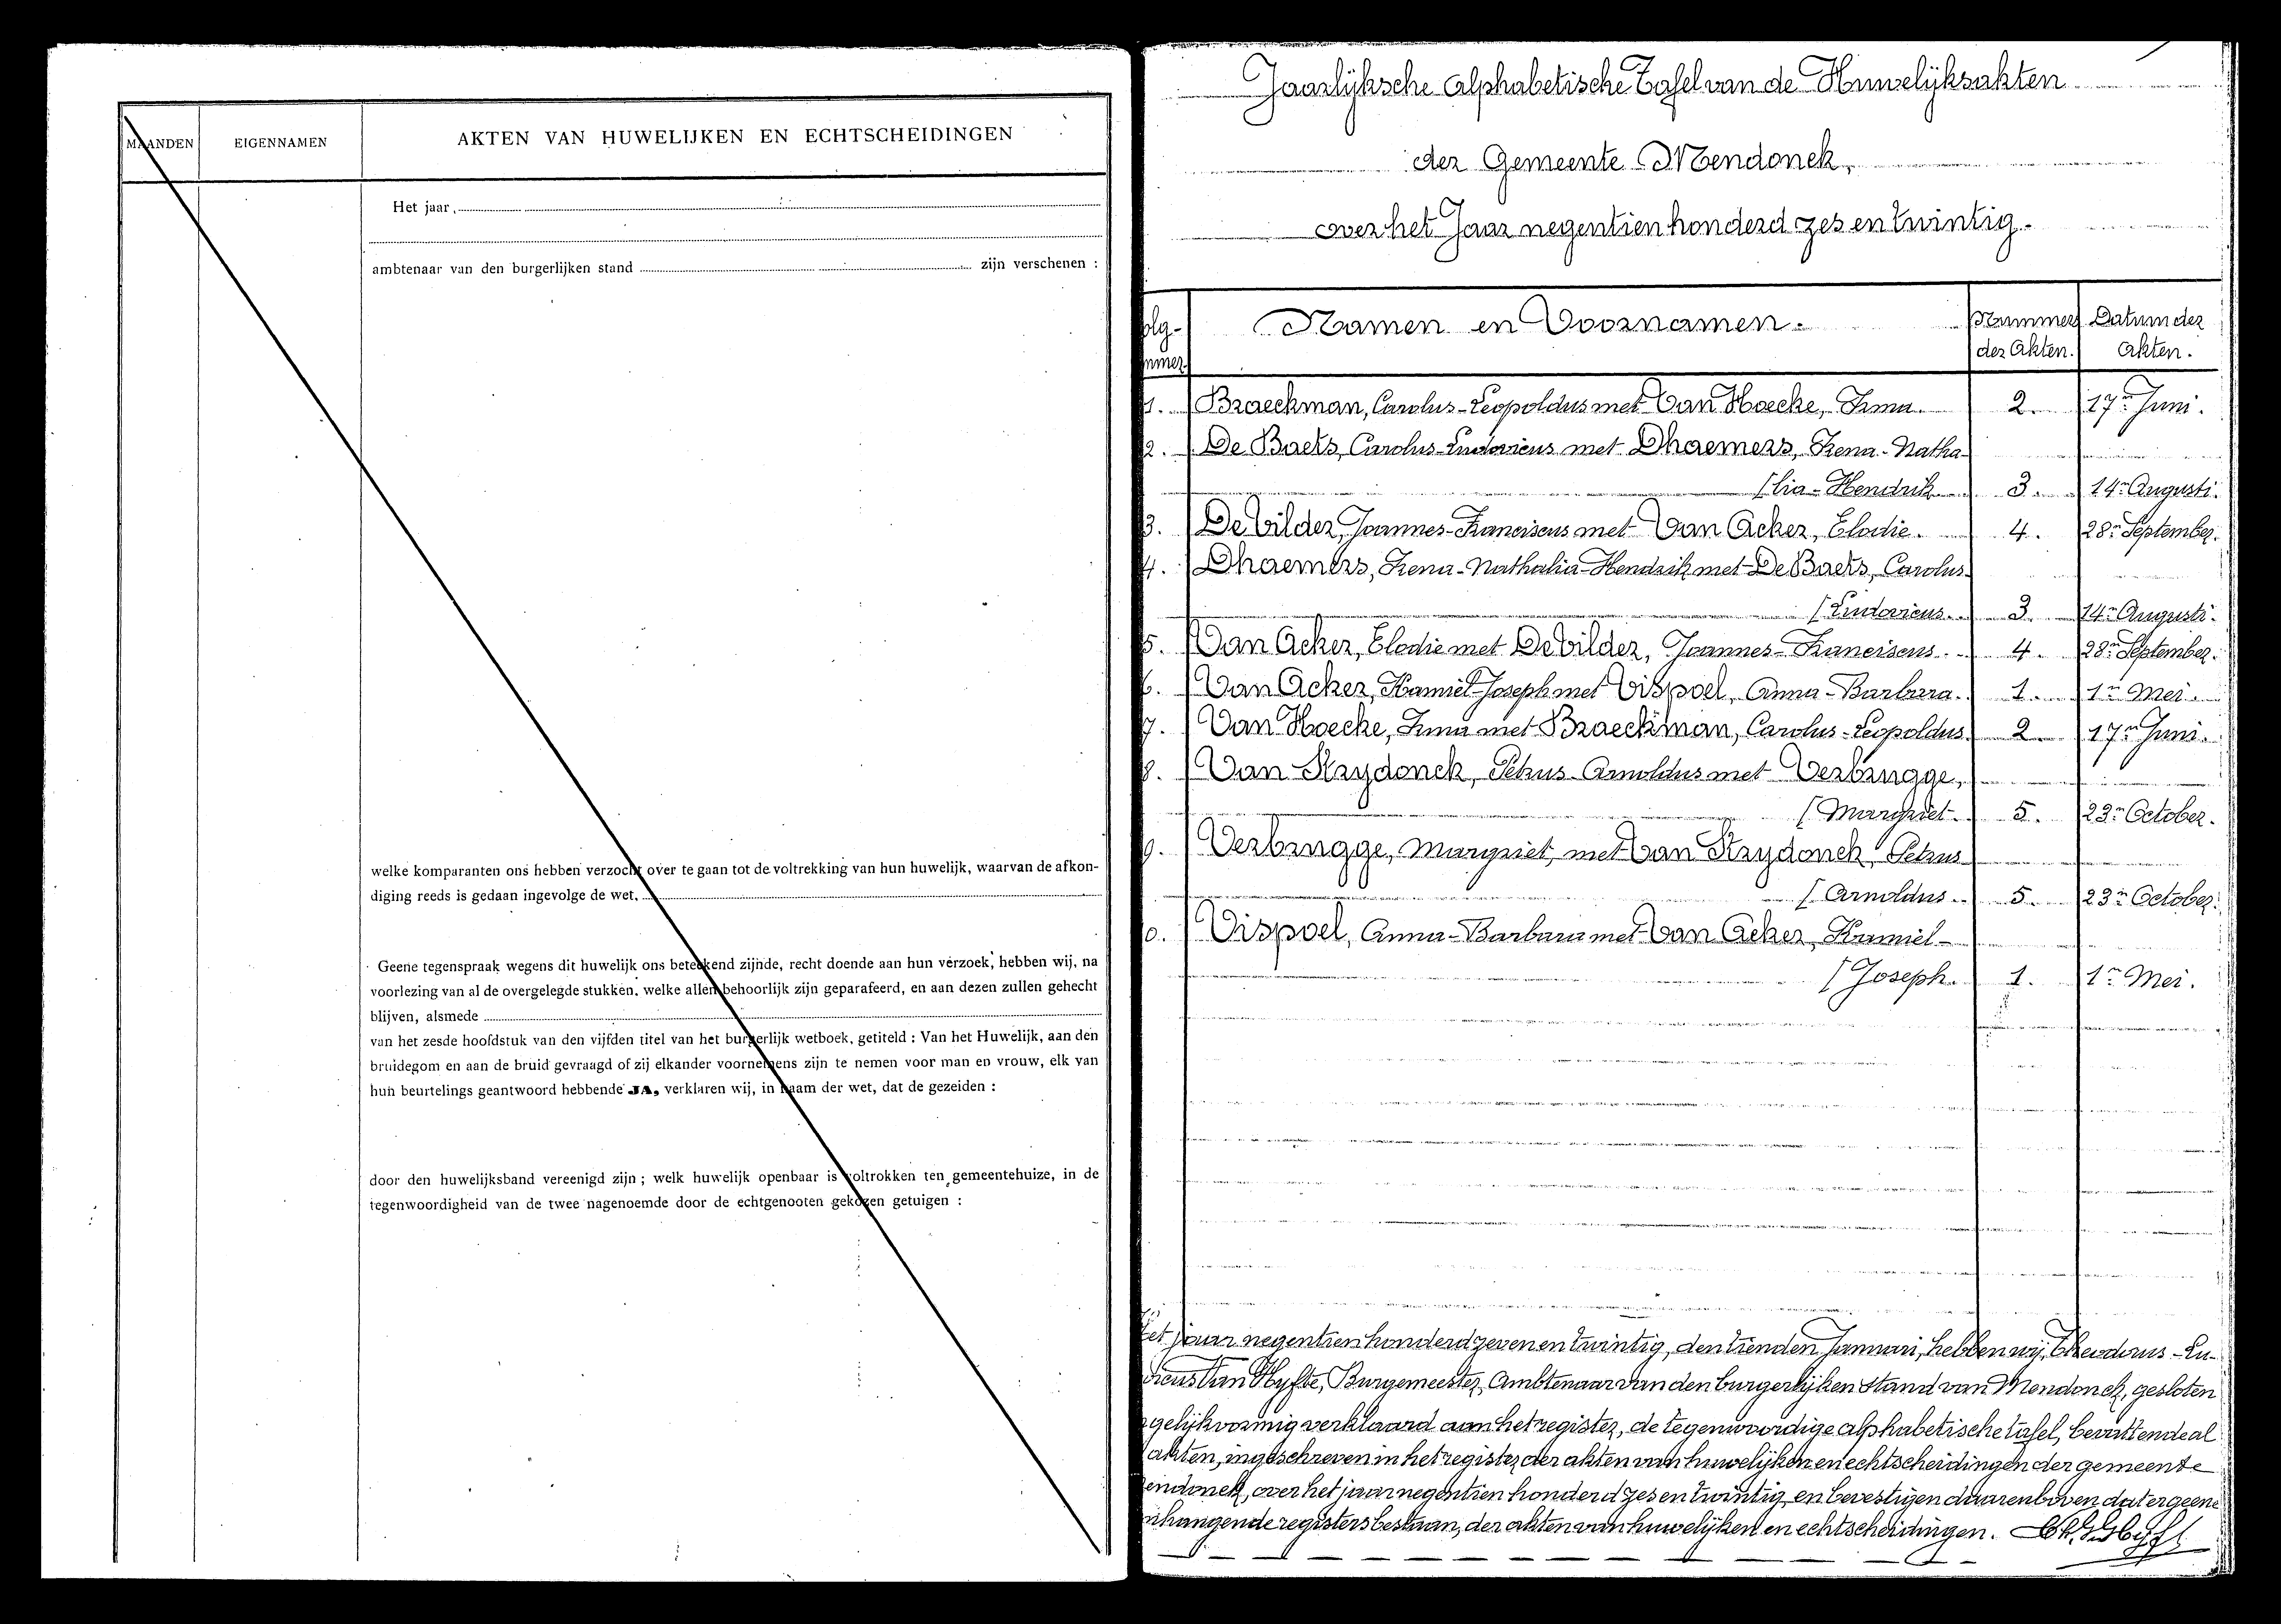 MAANDEN
EIGENNAMEN
AKTEN VAN HUWELIJKEN EN ECHTSCHEIDINGEN
Het jaar,
ambtenaar van den burgerlijken stand zijn verschenen :
welke komparanten ons hebben verzocht over te gaan tot de voltrekking van hun huwelijk, waarvan de afkon-
diging reeds is gedaan ingevolge de wet,
Geene tegenspraak wegens dit huwelijk ons beteekend zijnde, recht doende aan hun verzoek, hebben wij, na
voorlezing van al de overgelegde stukken, welke allen behoorlijk zijn geparafeerd, en aan dezen zullen gehecht
blijven, alsmede
van het zesde hoofdstuk van den vijfden titel van het burgerlijk wetboek, getiteld : Van het Huwelijk, aan den
bruidegom en aan de bruid gevraagd of zij elkander voornemens zijn te nemen voor man en vrouw, elk van
hun beurtelings geantwoord hebbende JA, verklaren wij, in naam der wet, dat de gezeiden :
door den huwelijksband vereenigd zijn ; welk huwelijk openbaar is voltrokken ten gemeentehuize, in de
tegenwoordigheid van de twee nagenoemde door de echtgenooten gekozen getuigen :
Jaarlijksche alphabetische Tafel van de Huwelijksakten
der Gemeente Mendonck,
over het Jaar negentien honderd zes en twintig.
olg- Namen en Voornamen. Nummer Datum der
mmer der Akten. Akten.
1. Braeckman, Carolus-Leopoldus met Van Hoecke, Irma. 2. 17n Juni.
2. De Baets, Carolus-Ludovicus met Dhaemers, Irena-Natha-
(lia-Hendrik 3. 14n Augusti.
3. De Vilder, Joannes-Franciscus met Van Acker, Elodie. 4. 28n September.
4. Dhaemers, Irena-Nathalia-Hendrik met De Baets, Carolus-
(Ludovicus. 3. 14n Augusti.
5. Van Acker, Elodie met De Vilder, Joannes-Franciscus. 4. 28n September.
6. Van Acker, Kamiel-Joseph met Vispoel, Anna-Barbara. 1. 1n Mei.
7. Van Hoecke, Irma met Braeckman, Carolus-Leopoldus. 2. 17n Juni.
8. Van Strydonck, Petrus-Arnoldus met Verbrugge,
(Margriet. 5. 23n October.
9. Verbrugge, Margriet, met Van Strydonck, Petrus
(Arnoldus. 5. 23n October.
0. Vispoel, Anna-Barbara met Van Acker, Kamiel-
(Joseph. 1. 1n Mei.
et jaar negentien honderd zeven en twintig, den tienden Januari, hebben wij, Theodorus-Lu-
vicus Van Hyfte, Burgemeester, Ambtenaar van den burgerlijken stand van Mendonck, gesloten
gelijkvormig verklaard aan het register, de tegenwoordige alphabetische tafel, bevattende al
akten, ingeschreven in het register der akten van huwelijken en echtscheidingen der gemeente
endonck, over het jaar negentien honderd zes en twintig, en bevestigen daarenboven dat er geene
nhangende registers bestaan, der akten van huwelijken en echtscheidingen.